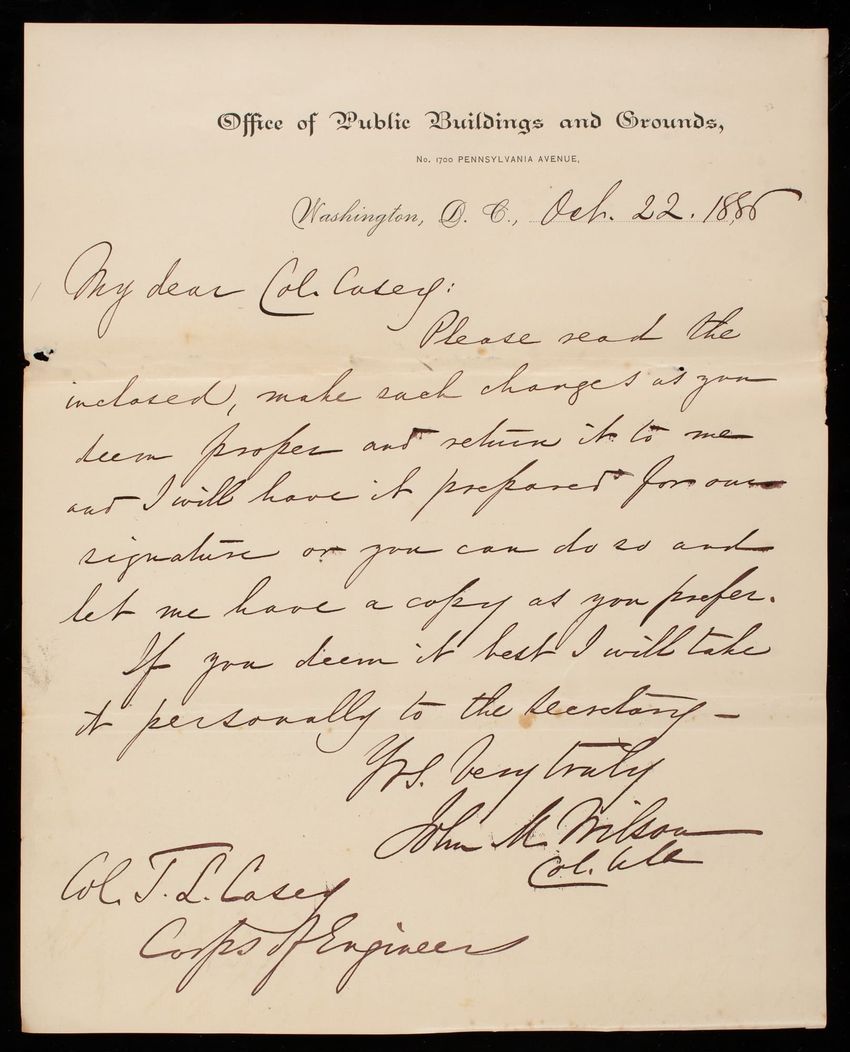 Office of Public Buildings and Grounds,
No. 1700 PENNSYLVANIA AVENUE,
Washington, D. C., Oct. 22. 1886
My dear Col. Casey:
Please read the
inclosed, make such changes as you
deem proper and return it to me
and I will have it prepared for our
signature or you can do so and
let me have a copy as you prefer.
If you deem it best I will take
it personally to the Secretary –
Yrs. Very truly
John M. Wilson
Col.
Col. T. L. Casey
Corps of Engineers